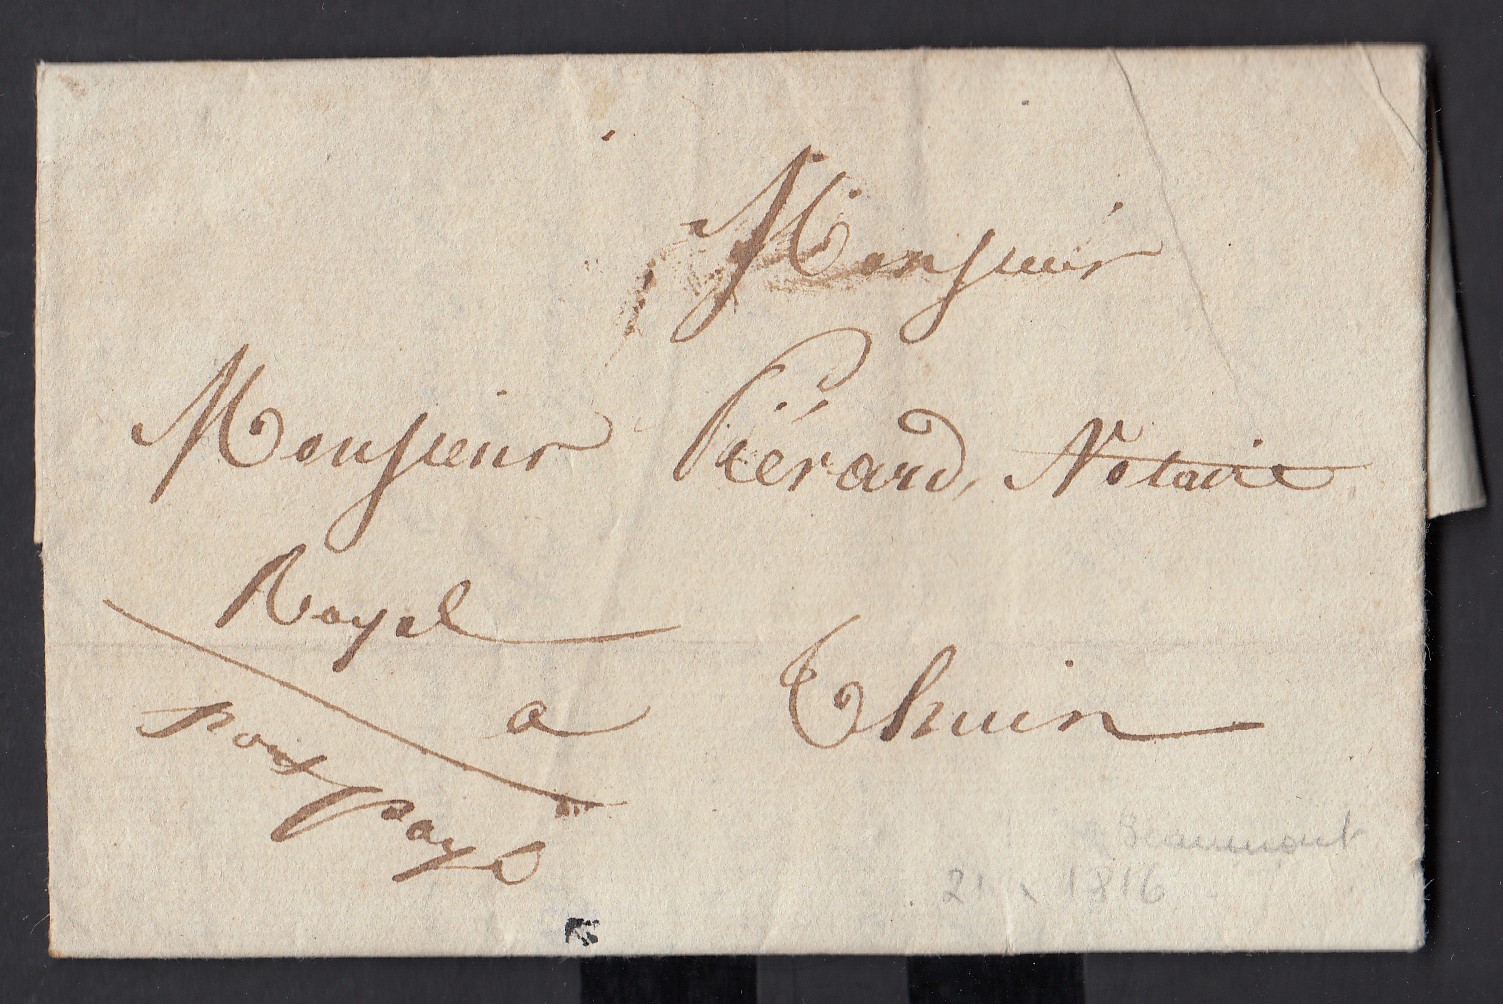 Monsieur
Monsieur Piérard, Notaire
Royal
a Thuin
port payé
Beaumont
21 x 1816